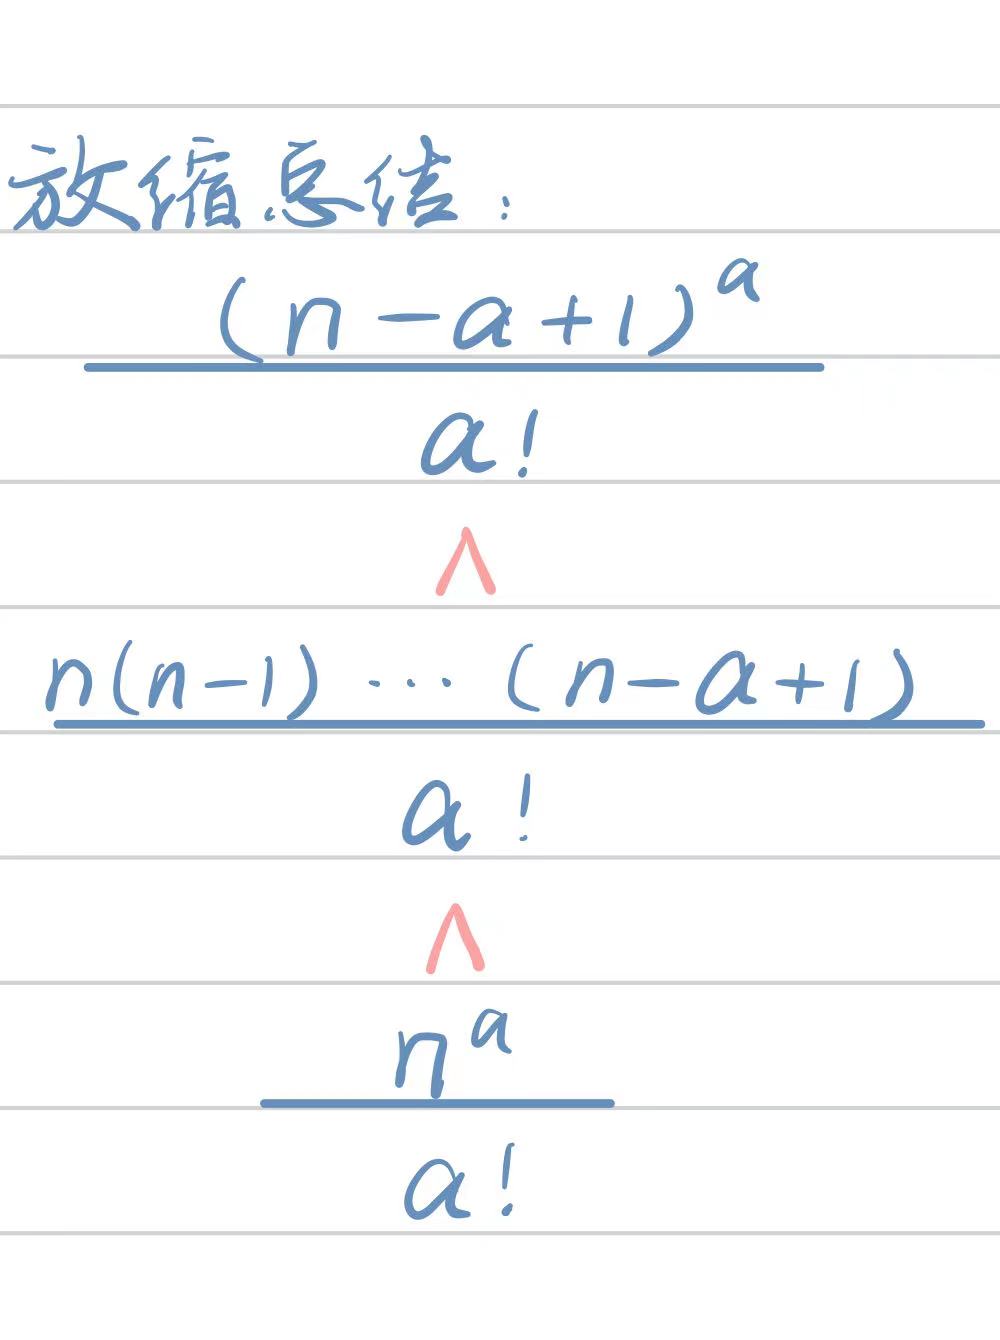 放缩总结：
(n-a+1)^a
a!
∧
n(n-1)···(n-a+1)
a!
∧
n^a
a!